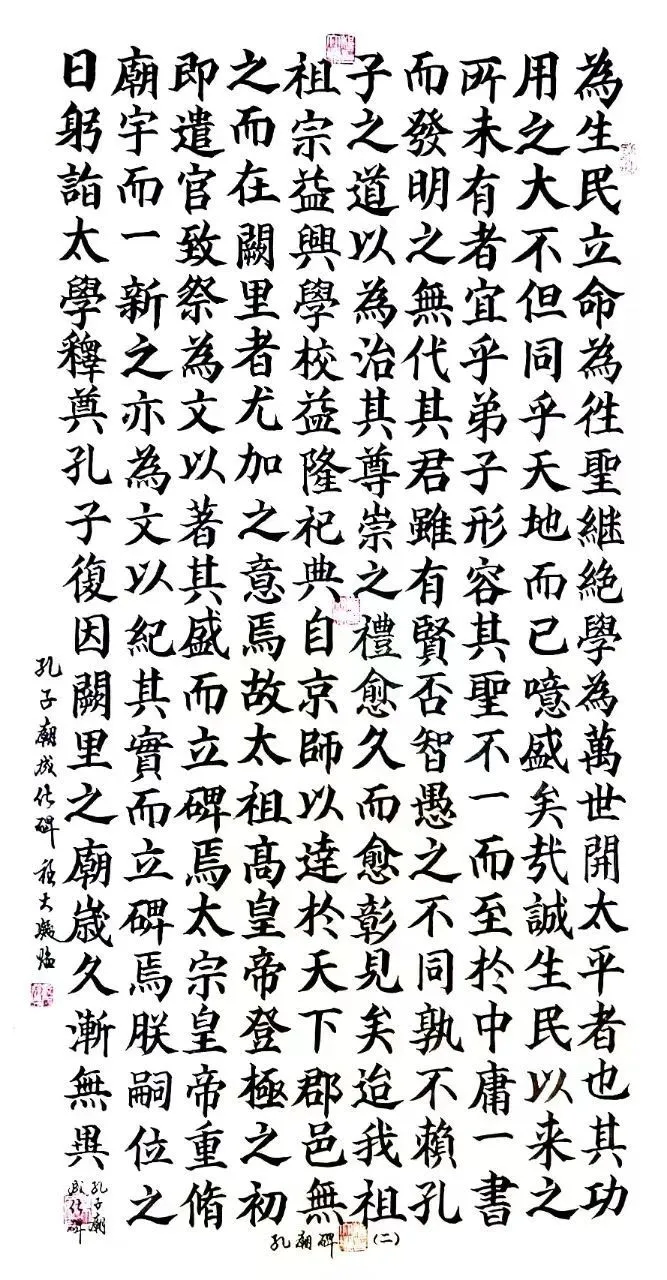 為生民立命為徃聖継絶學為萬世開太平者也其功
用之大不但同乎天地而已噫盛矣㢤誠生民以来之
所未有者宜乎弟子形容其聖不一而至於中庸一書
而發明之無代其君雖有賢否智愚之不同孰不賴孔
子之道以為治其尊崇之禮愈久而愈彰見矣迨我祖
祖宗益興學校益隆祀典自京師以逹於天下郡邑無
之而在闕里者尤加之意焉故太祖髙皇帝登極之初
即遣官致祭為文以著其盛而立碑焉太宗皇帝重脩
廟宇而一新之亦為文以紀其實而立碑焉朕嗣位之
日躬詣太學釋奠孔子復因闕里之廟歳久漸無異
孔子廟成化碑
孔子廟成化碑
孔廟碑(二)